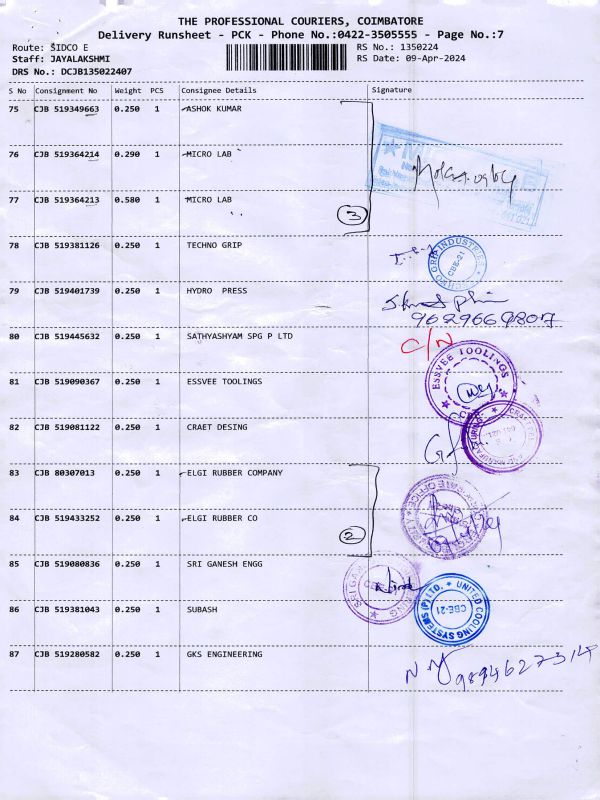 THE PROFESSIONAL COURIERS, COIMBATORE
Delivery Runsheet - PCK - Phone No.:0422-3505555 - Page No.:7
Route: SIDCO E RS No.: 1350224
Staff: JAYALAKSHMI RS Date: 09-Apr-2024
DRS No.: DCJB135022407
S No Consignment No Weight PCS Consignee Details Signature
75 CJB 519349663 0.250 1 ASHOK KUMAR
76 CJB 519364214 0.290 1 MICRO LAB
77 CJB 519364213 0.580 1 MICRO LAB
3
78 CJB 519381126 0.250 1 TECHNO GRIP
INDUSTRIES CBE-21
79 CJB 519401739 0.250 1 HYDRO PRESS
80 CJB 519445632 0.250 1 SATHYASHYAM SPG P LTD
C/N
81 CJB 519090367 0.250 1 ESSVEE TOOLINGS
ESSVEE TOOLINGS
82 CJB 519081122 0.250 1 CRAET DESING
83 CJB 80307013 0.250 1 ELGI RUBBER COMPANY
84 CJB 519433252 0.250 1 ELGI RUBBER CO
2
85 CJB 519080836 0.250 1 SRI GANESH ENGG
86 CJB 519381043 0.250 1 SUBASH
UNITED COOLING SYSTEMS (P) LTD. CBE-21
87 CJB 519280582 0.250 1 GKS ENGINEERING
9894627314